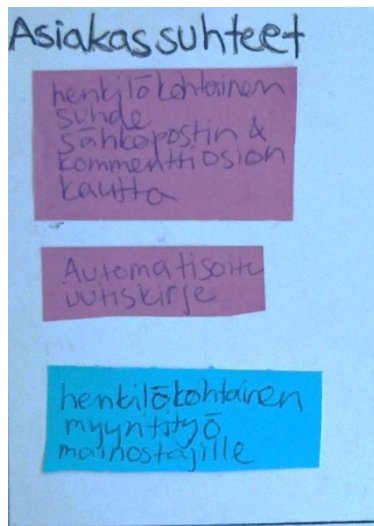 Asiakassuhteet
henkilökohtainen
suhde
sähköpostin &
kommenttiosion
kautta
Automatisoitu
uutiskirje
henkilökohtainen
myyntityö
mainostajille